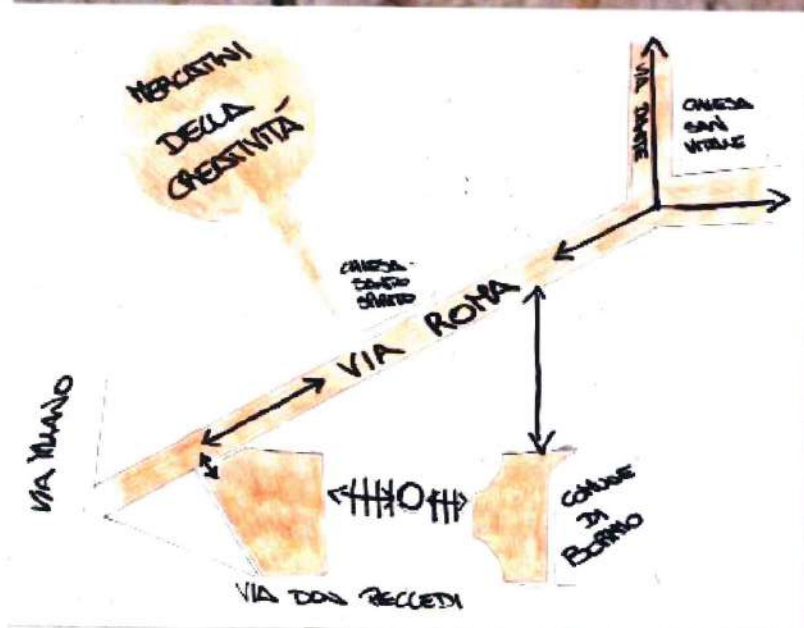 MERCATINI
DELLA
CREATIVITÁ
VIA DANTE
CHIESA
SAN
VITALE
CHIESA
SANTO
SPIRITO
VIA ROMA
VIA MILANO
COMUNE
DI
BORMIO
VIA DON PECCEDI